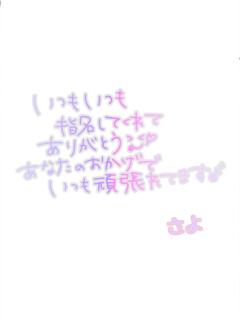 いつもいつも
指名してくれて
ありがとうっ♡
あなたのおかげで
いつも頑張れてます♪
さよ